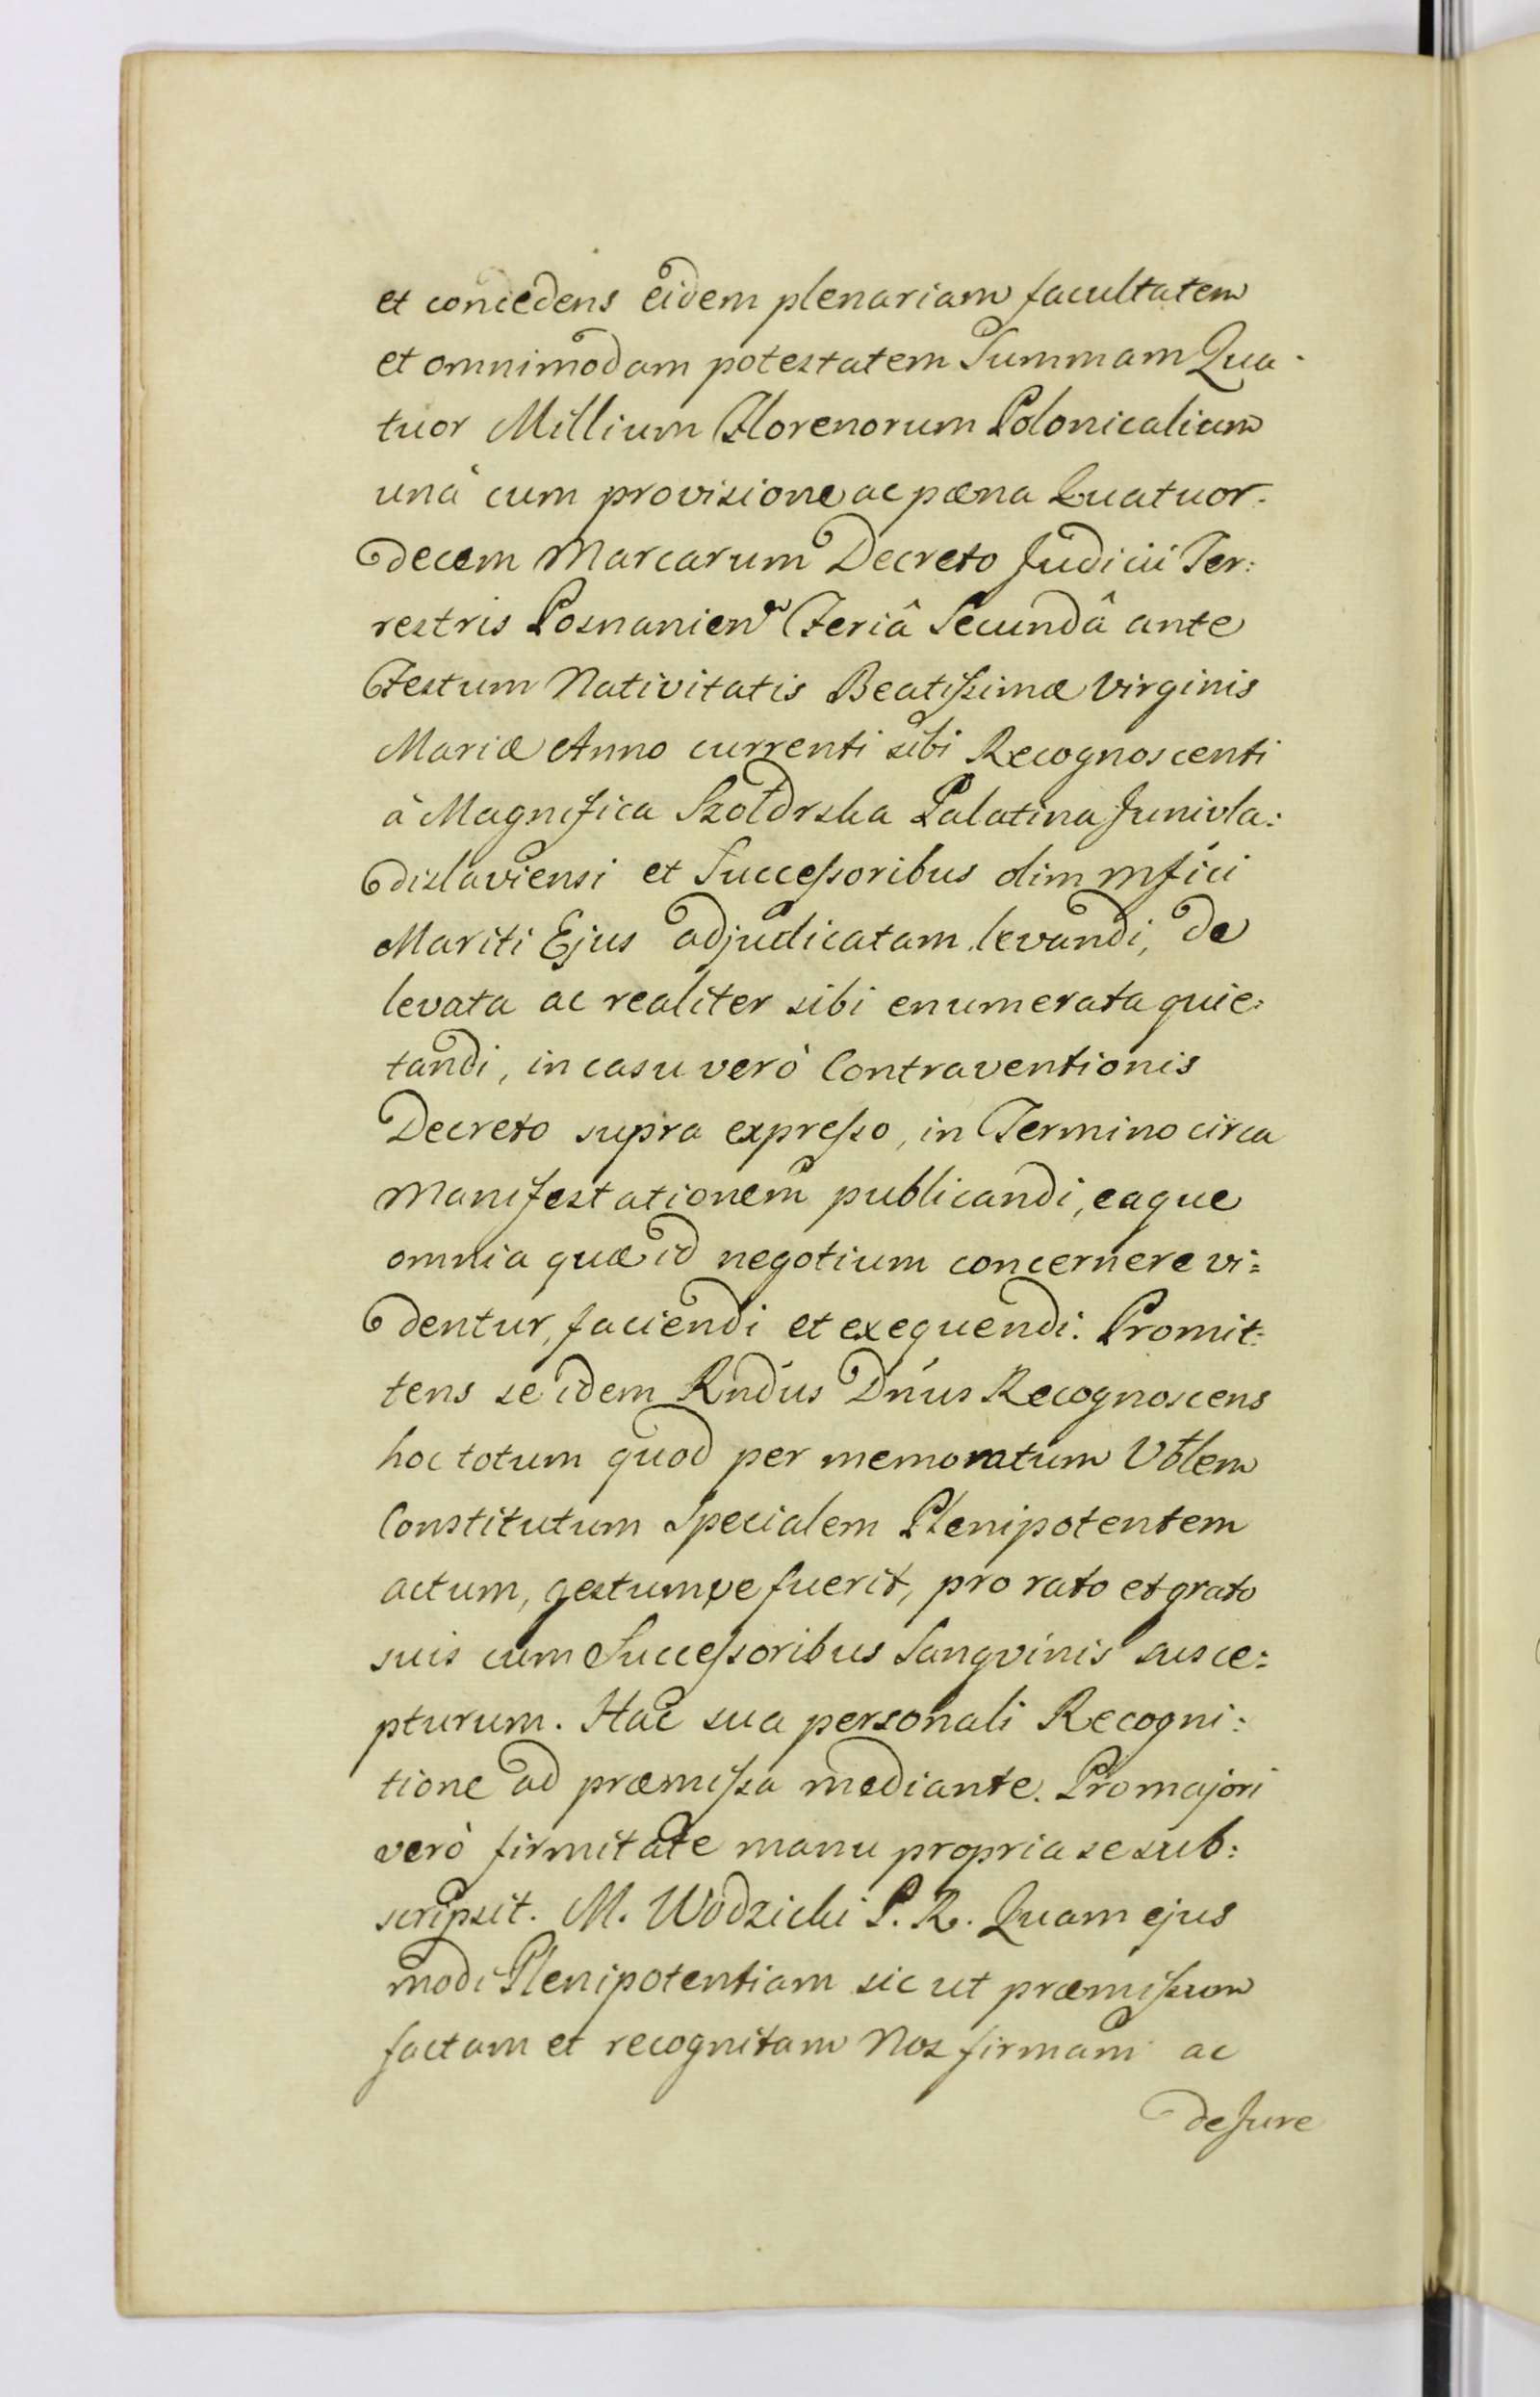 et concedens eidem plenariam facultatem
et omnimodam potestatem Summam Qua-
tuor Millium Florenorum Polonicalium
unà cum provisione ac pœna Quatuor-
decem Marcarum Decreto Judicii Ter:
restris Posnanien Feriâ Secundâ ante
Festum Nativitatis Beatissimæ Virginis
Mariæ Anno currenti sibi Recognoscenti
à Magnifica Szołdrska Palatina Junivla:
dislaviensi et Successoribus olim Mfici
Mariti Ejus adjudicatam levandi, de
levata ac realiter sibi enumerata quie:
tandi, in casu verò Contraventionis
Decreto supra expresso, in Termino circa
Manifestationem publicandi, eaque
omnia quæ id negotium concernere vi:
dentur, faciendi et exequendi. Promit:
tens se idem Rndus Dnus Recognoscens
hoc totum quod per memoratum Vblem
Constitutum Specialem Plenipotentem
actum, gestumve fuerit, pro rato et grato
suis cum Successoribus Sangvinis susce:
pturum. Hac sua personali Recogni:
tione ad præmissa mediante. Pro majori
verò firmitate manu propria se sub:
scripsit. M. Wodzicki P. R. Quam ejus
modi Plenipotentiam sic ut præmissum
factam et recognitam Nos firmam ac
de Jure